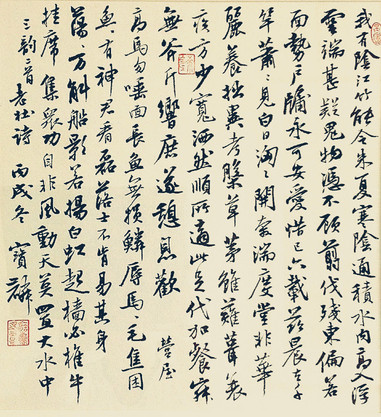 我有陰江竹能令朱夏寒陰通積水内高入浮
雲端甚疑鬼物憑不顧翦伐殘東偏若
面勢戶牖永可安愛惜已六載兹晨去千
竿蕭々見白日洶々開奔湍度堂非華
麗養拙異考槃草茅雖薙葺衰
疾方少寬洒然順所適此足代加餐寂
無斧斤響庶遂憩息歡 營屋
高馬勿唾面長魚無損鱗辱馬々毛焦困
魚々有神君看磊落士不肯易其身
蕩々万斛船影若揚白虹起檣必椎牛
挂席集衆功自非風動天莫置大水中
三韵二首 老杜詩 丙戌冬 寶麟